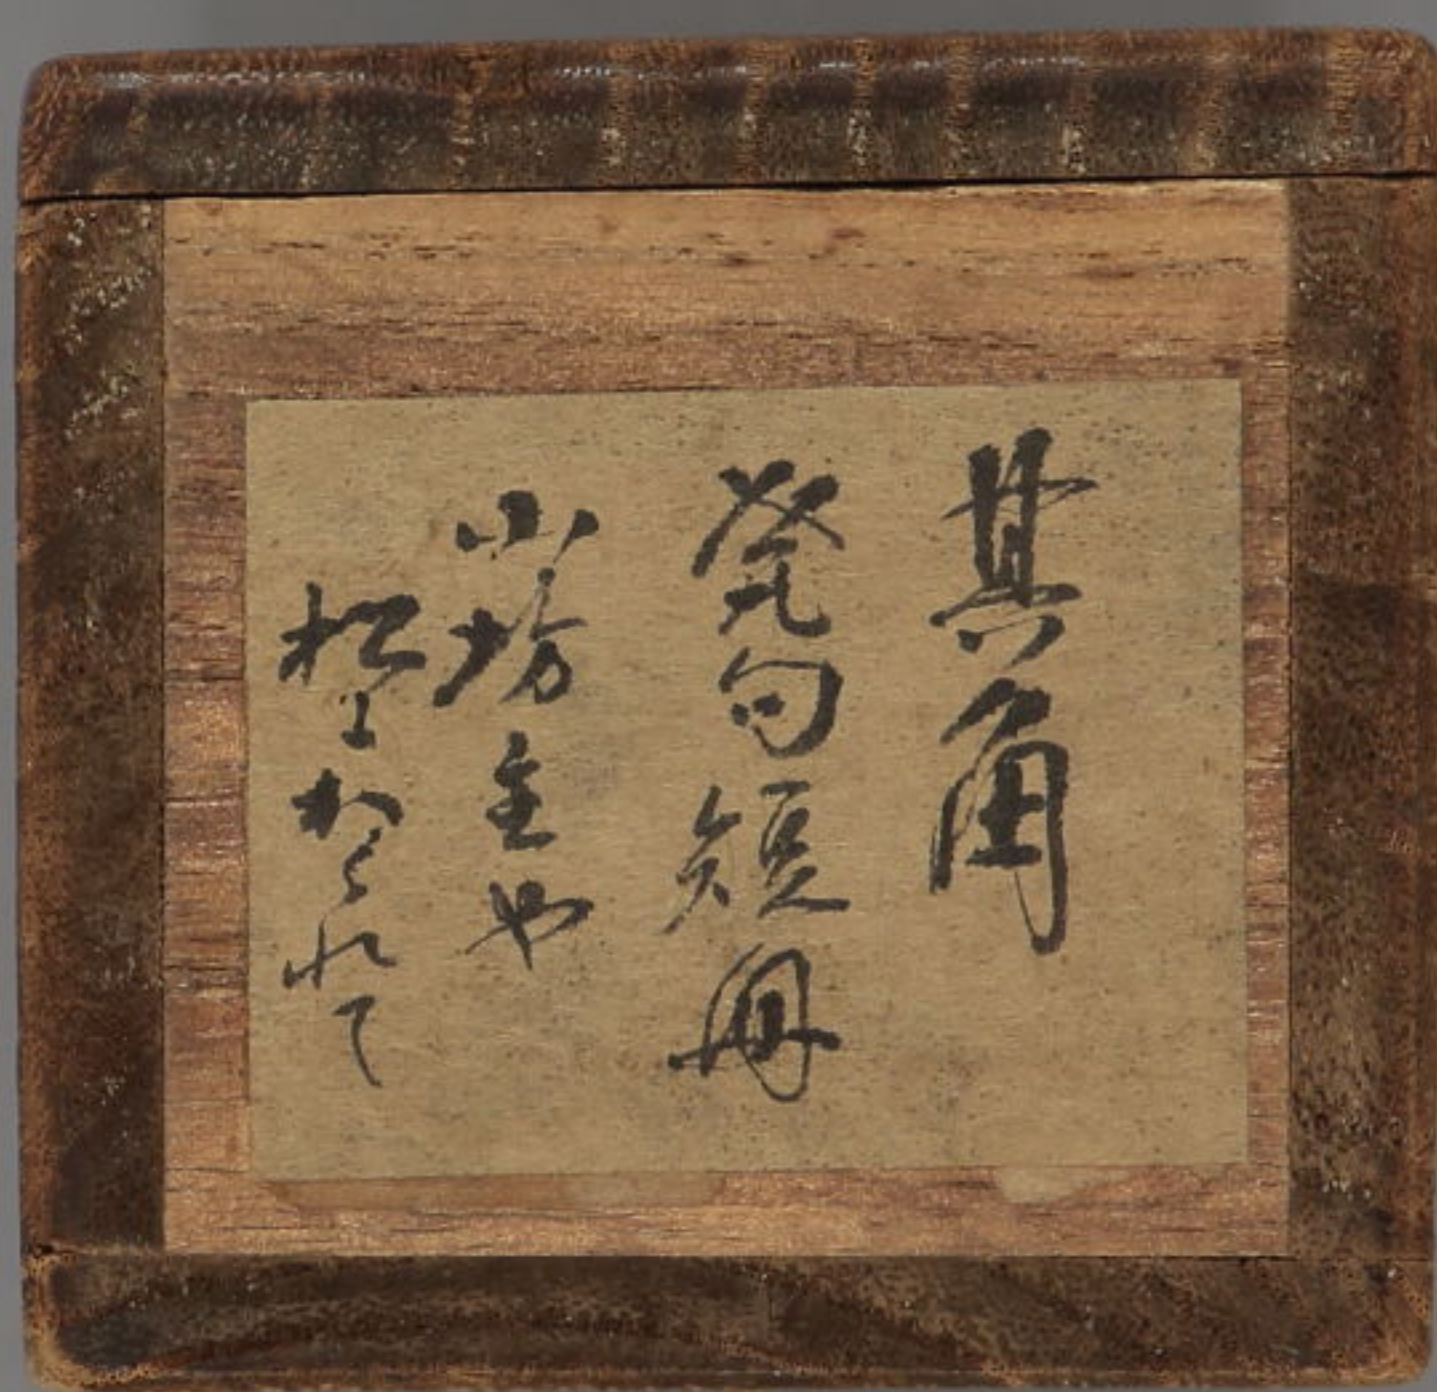 其角
発句短冊
小坊主や
松にかくれて